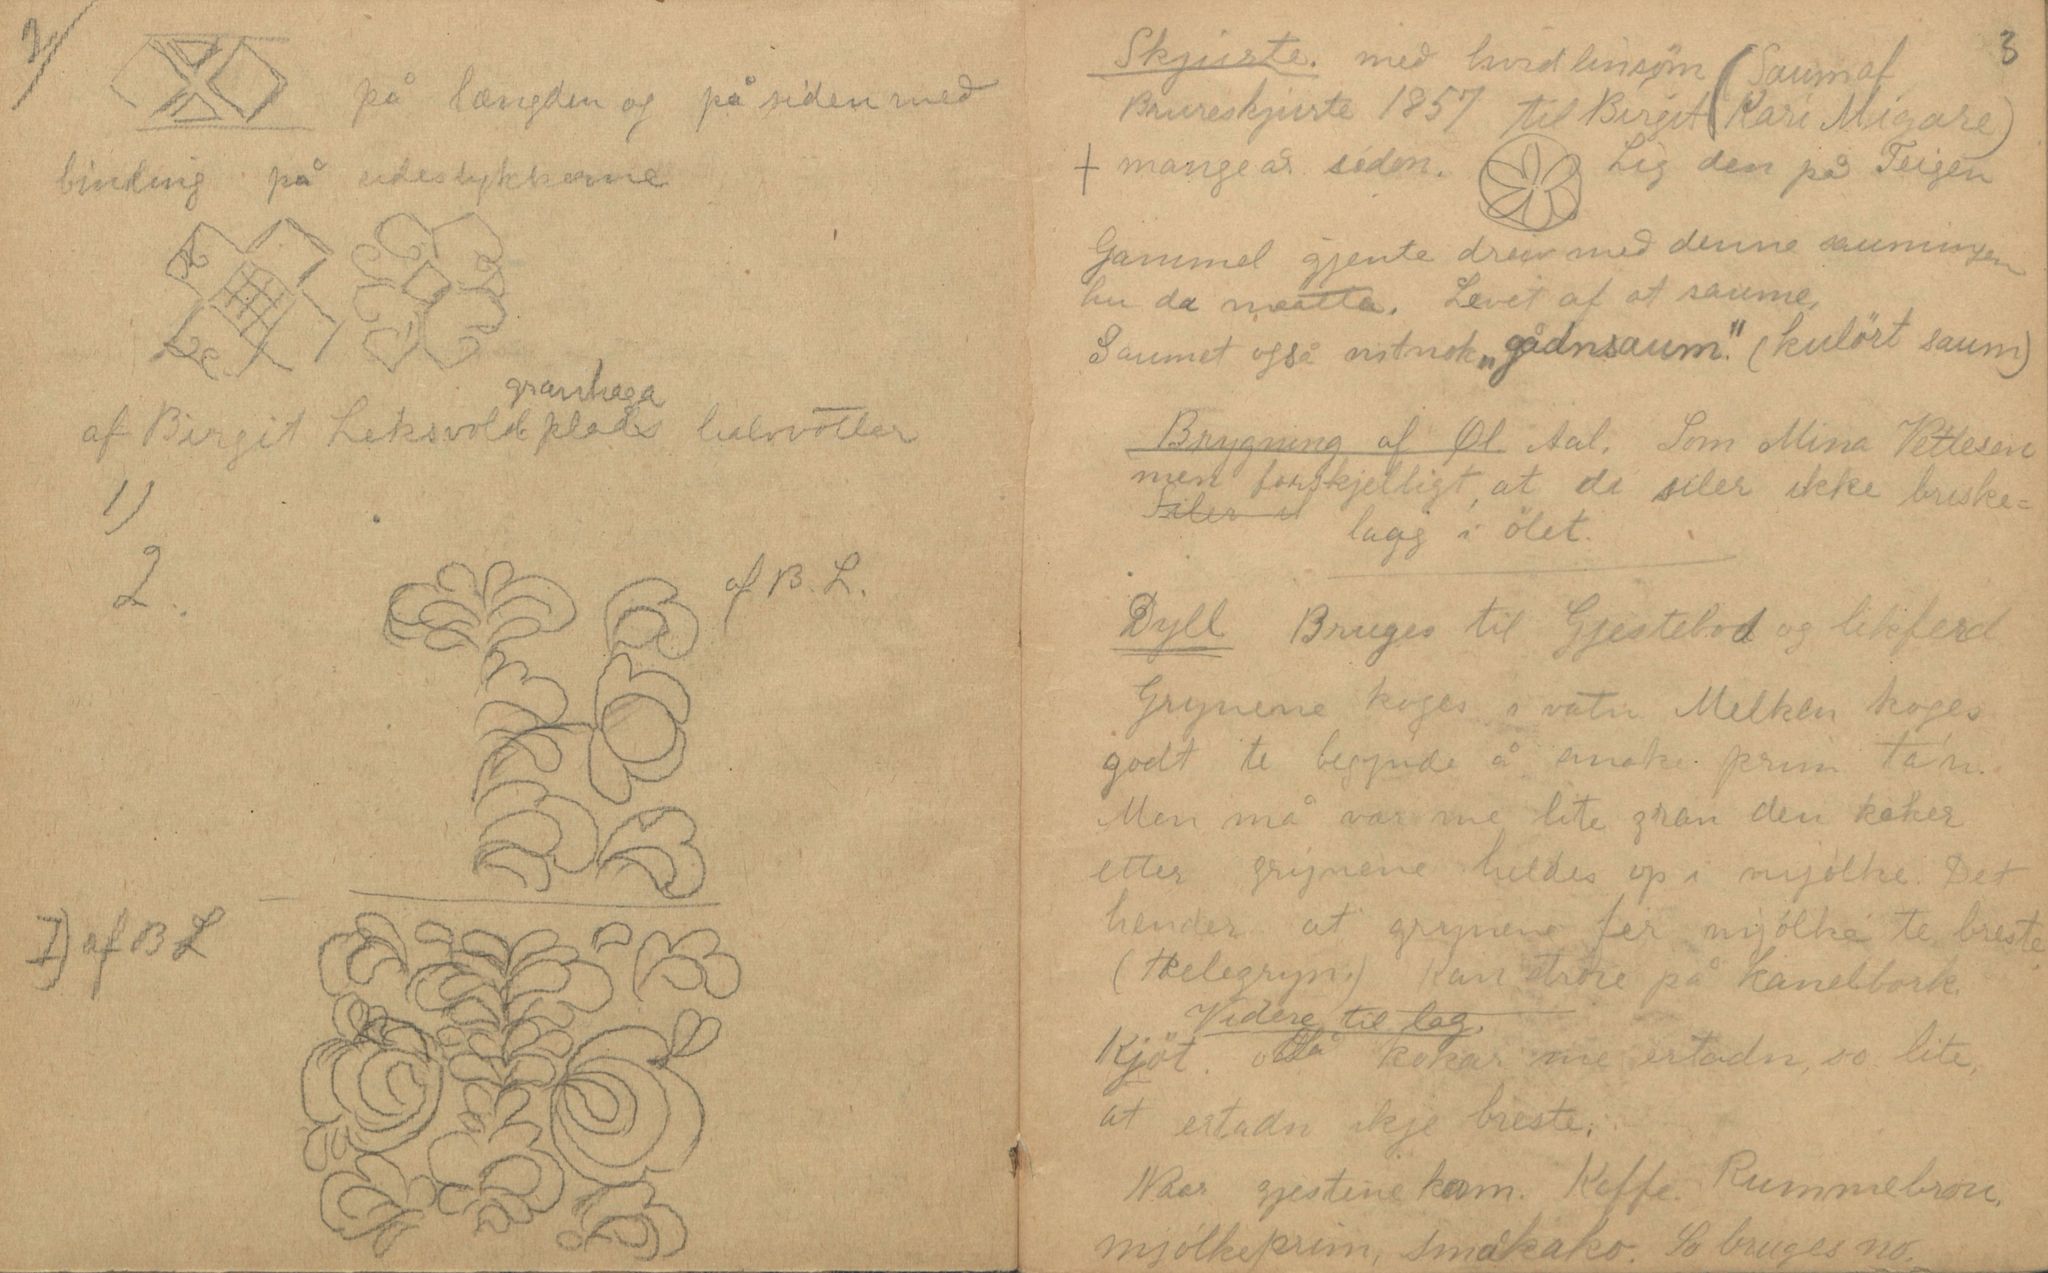 2
på længden og på siden med
binding på sidestykkerne
granhaga
af Birgit Leksvold plads halvvötter
1)
2.
af B. L.
I) af B L
3
Skjurte. med hvid linsøm (Saum af
Brureskjurte 1857 til Birgit (Kari Migare)
+ mange år siden. Lig den på Teigen
Gammel gjente dreiv med denne saumingen
hu da maatta. Levet af at saume,
Saumet også vistnok „gådnsaum." (kulört saum)
Brygning af Øl Aal. Som Mina Vetlesen
men forskjelligt, at di siler ikke briske=
Siler i lagg i ölet.
Dyll Bruges til Gjestebod og likferd
Grynene koges i vatn Melken koges
godt te begynde å smake prim ta'n.
Men må var me lite gran den koker
etter grynene heldes op i mjölke. Det
hender at grynene fer mjölke te breste
(Helegryn.) Kan strøe på kanelbork.
Videre til lag.
Kjöt. også kokar me ertadn, so lite,
at ertadn ikje breste.
Naar gjestine kom. Kaffe. Rummebrou,
mjölkeprim, småkako. So bruges no.